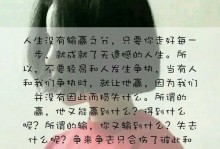 人生没有输赢之分，只要你走好每一
步，就成就了无遗憾的人生。所
以，不要轻易和人发生争执，当有人
和我们争执时，就让他赢，因为我们
并没有因此而损失什么。所谓的
赢，他又能赢到什么？得到什么
呢？所谓的输，你又输到什么？失去
什么呢？争来争去只会伤了彼此和